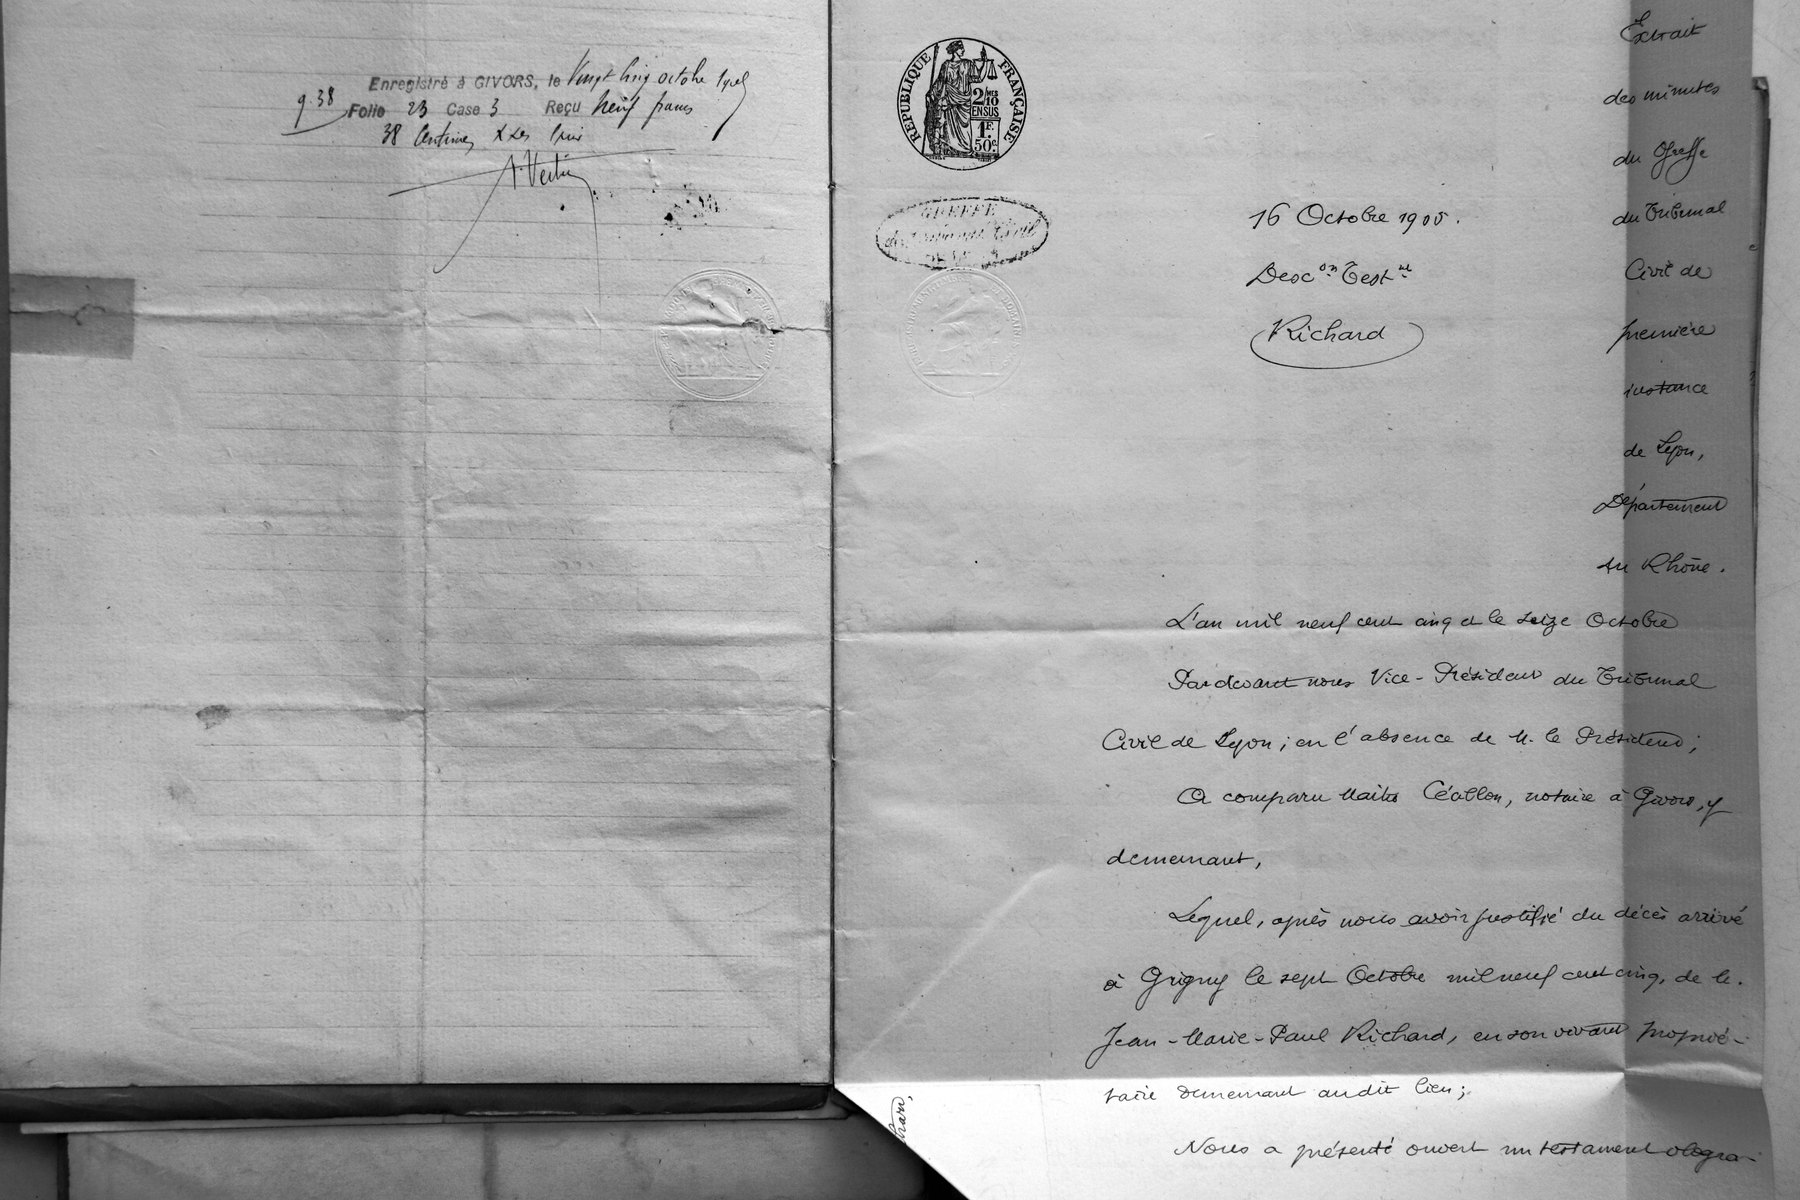 Enregistré à GIVORS, le Vingt cinq octobre
9.38
Folio 23 Case 3 Reçu Neuf francs
38 Centimes
RÉPUBLIQUE FRANÇAISE
2/MES
10
EN SUS
1F.
50c.
GREFFE
du Tribunal Civil
16 Octobre 1905.
Desc.on Test.re
Richard
Extrait
des minutes
du Greffe
du Tribunal
Civil de
première
instance
de Lyon,
Département
du Rhône.
L'an mil neuf cent cinq et le seize Octobre
Pardevant nous Vice-Président du Tribunal
Civil de Lyon; en l'absence de M. le Président;
A comparu Maître Céallon, notaire à Givors, y
demeurant,
Lequel, après nous avoir justifié du décès arrivé
à Grigny le sept Octobre mil neuf cent cinq, de M.
Jean-Marie-Paul Richard, en son vivant proprié-
taire demeurant audit lieu;
Nous a présenté ouvert un testament ologra-